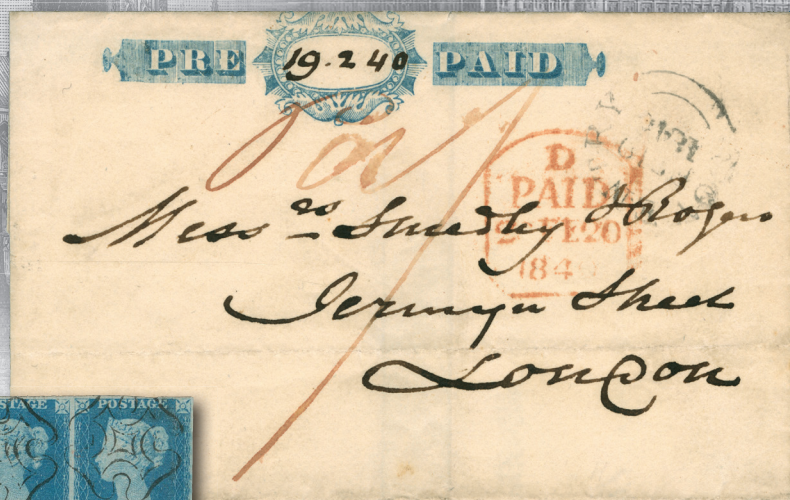 PRE 19-2 40 PAID
D
PAID
FE 20
184
Mess rs Smedley & Rogers
Jermyn Street
London
POSTAGE